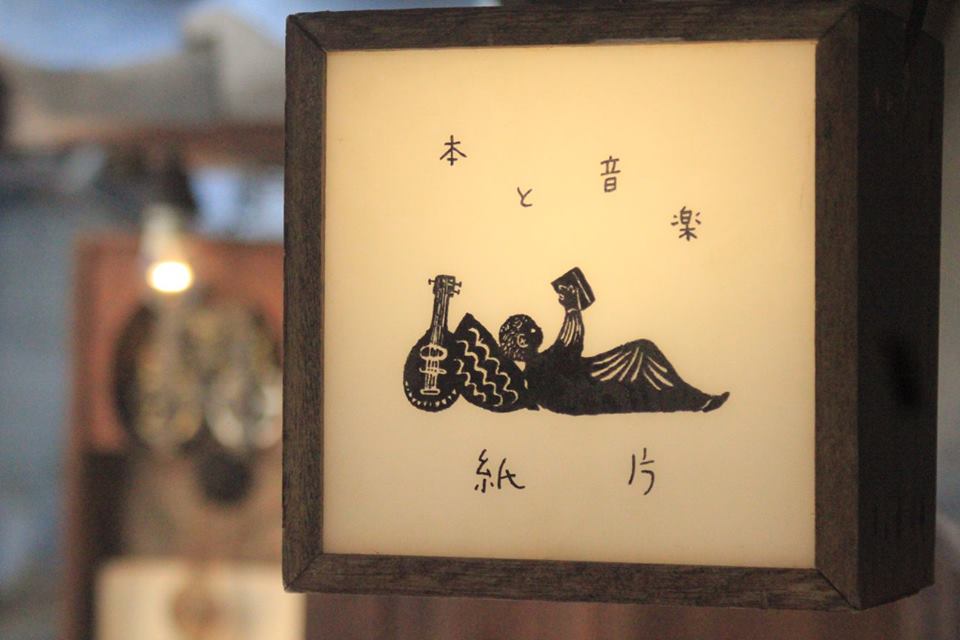 本と音楽
紙片